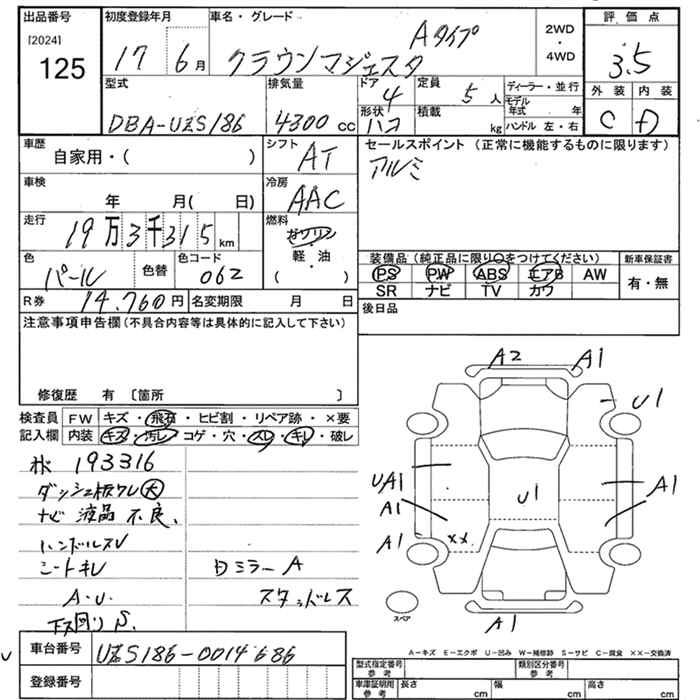 出品番号
[2024]
125
初度登録年月
17 6月
車名・グレード
Aタイプ
クラウンマジェスタ
2WD
・
4WD
評価点
3.5
外装 内装
C D
型式
DBA-UZS186
排気量
4300 cc
ドア
4
形状
ハコ
定員
5 人
積載
kg
ディーラー・並行
モデル年式 年
ハンドル 左・右
車歴
自家用・( )
シフト
AT
セールスポイント (正常に機能するものに限ります)
アルミ
車検
年 月( 日)
冷房
AAC
走行
19万3千315km
燃料
ガソリン
・
軽・油
( )
色
パール
色替
色コード
062
装備品(純正品に限り○をつけてください)
新車保証書
PS PW ABS エアB AW
SR ナビ TV カワ
有・無
R券 14,760円
名変期限 月 日
後日品
注意事項申告欄(不具合内容等は具体的に記入して下さい)
修復歴 有 〔箇所 〕
検査員記入欄
FW キズ・飛石・ヒビ割・リペア跡・×要
内装 キズ・汚レ・コゲ・穴・スレ・キレ・破レ
193316
ダッシュ板ワレ大
ナビ液晶不良.
ハンドルスレ
シートキレ
A.U.
下廻りS.
日ミラーA
スタッドレス
A2 A1
U1
UA1
A1
A1
U1
A1
××
A1
スペア
A−キズ E−エクボ U−凹み W−補修跡 S−サビ C−腐食 ××−交換済
車台番号
UZS186-0014686
登録番号
型式指定番号 参考
類別区分番号 参考
車庫証明用 参考
長さ cm
幅 cm
高さ cm